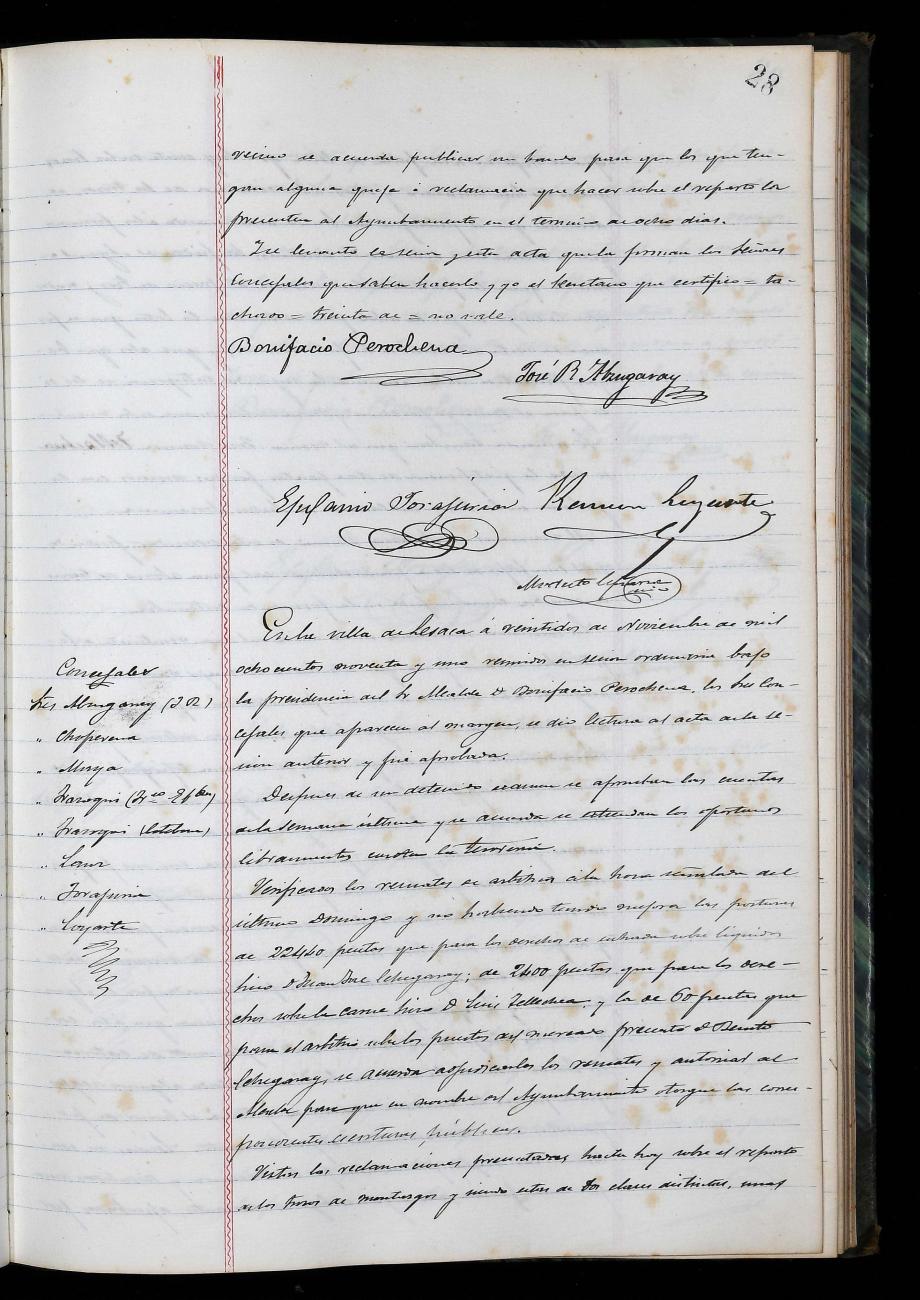 28
vecino se acuerda publicar un bando para que los que ten-
gan alguna queja ó reclamacia que hacer sobre el reparto los
presenten al Ayuntamiento en el termino de ocho dias.
Y se levanto la sesion y esta acta que la firman los Señores
Concejales que saben hacerlo y yo el Secretario que certifico = ta-
chado = treinta de = no vale.
Bonifacio Perochena
José R. Abugaray
Epifanio Torajuria Ramon Loyarte
Modesto
En la villa de Lesaca á veintidos de Noviembre de mil
ochocientos noventa y uno reunidos en sesion ordinaria bajo
la presidencia del Sr Alcalde D Bonifacio Perochena, los Sres Con
cejales que aparecen al margen, se dio lectura al acta de la se-
sion anterior y fué aprobada.
Concejales
Sres Abugaray (J R)
" Choperena
" Maya
" Irazoqui (
" Irazoqui (Esteban)
" Lanz
" Torajuria
" Loyarte
Despues de un detenido examen se aprueban las cuentas
de la semana última y se acuerda se estiendan los oportunos
libramientos contra la tesoreria.
Verificados los remates de arbitrios á la hora señalada del
último Domingo y no habiendo tenido mejora las posturas
de 22440 pesetas que para los derechos de entrada sobre liquidos
hizo D Juan José Echegaray; de 2400 pesetas que para los dere-
chos sobre la carne hizo D Luis Tellechea; y la de 60 pesetas que
para el arbitrio sobre los puestos del mercado presento D Benito
Echegaray, se acuerda adjudicarles los remates y autorizar al
Alcalde para que en nombre del Ayuntamiento otorgue las corres-
pondientes escrituras públicas.
Vistas las reclamaciones presentadas hasta hoy sobre el reparto
de los trozos de montazgos y siendo estas de dos clases distintas, unas